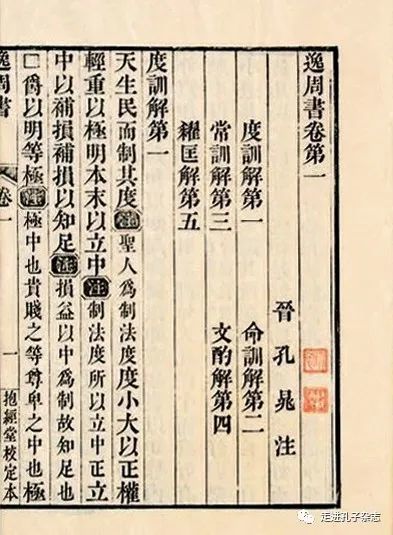 逸周書卷第一
晉孔晁注
度訓解第一 命訓解第二
常訓解第三 文酌解第四
糴匡解第五
度訓解第一
天生民而制其度注聖人爲制法度度小大以正權
輕重以極明本末以立中注制法度所以立中正立
中以補損補損以知足注損益以中爲制故知足也
□爵以明等極注極中也貴賤之等尊卑之中也極
逸周書 卷一 一 抱經堂校定本
走进孔子杂志